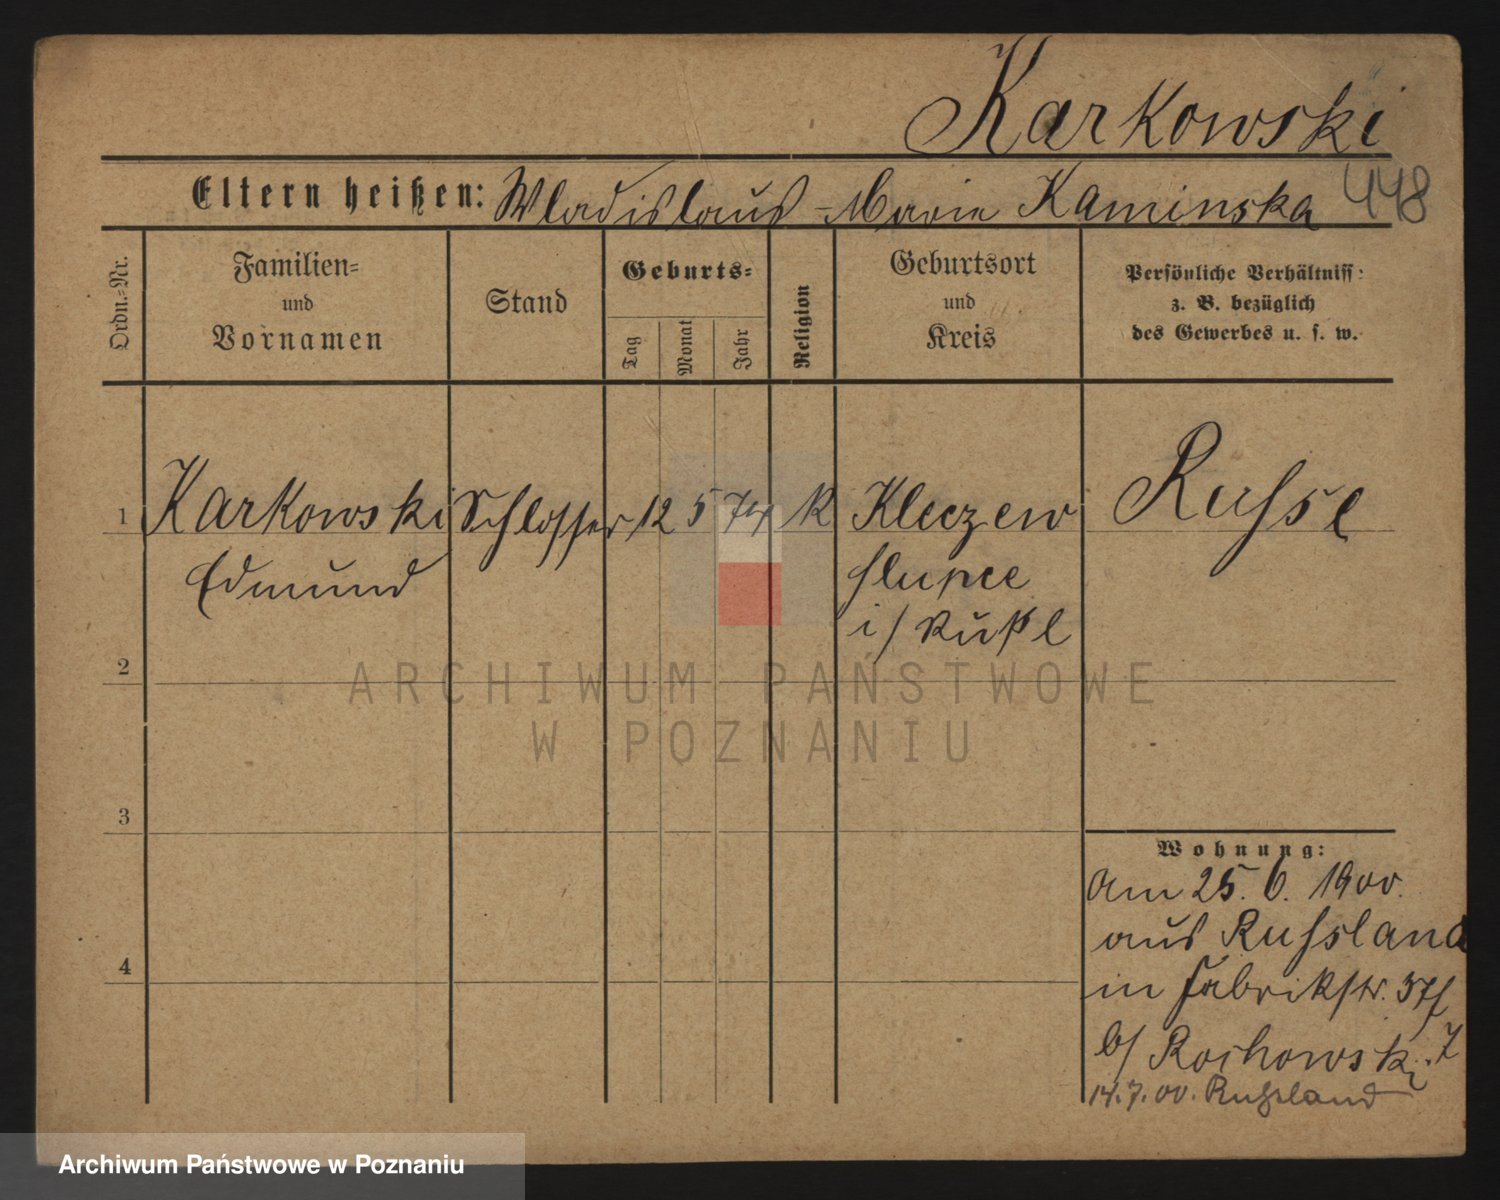 Karkowski
Eltern heißen: Wladislaus - Marie Kaminska 448
Ordn.-Nr.
Familien=
und
Vornamen
Stand
Geburts=
Tag
Monat
Jahr
Religion
Geburtsort
und
Kreis
Persönliche Verhältniss:
z. B. bezüglich
des Gewerbes u. s. w.
1 Karkowski Schlosser 12 5 74 k Kleczew Russe
Edmund slupce
i/ Rußl
2
ARCHIWUM PAŃSTWOWE
W POZNANIU
3
Wohnung:
Am 25. 6. 1900.
aus Russland
4
in Fabrikstr. 37
b/ Rochowski
14.7.00. Russland
Archiwum Państwowe w Poznaniu